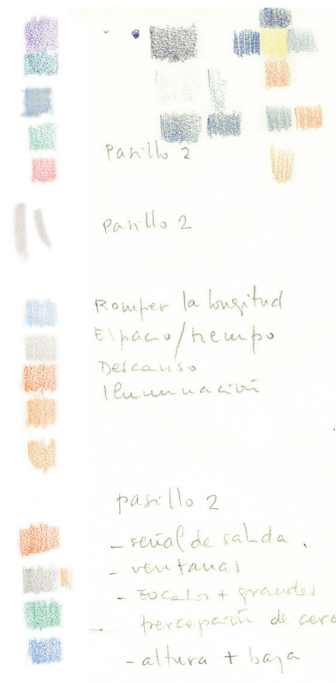 Pasillo 2
Pasillo 2
Romper la longitud
Espacio/tiempo
Descanso
Iluminación
pasillo 2
- señal de salida.
- ventanas
- zocalos + grandes
percepción de cerca
- altura + baja